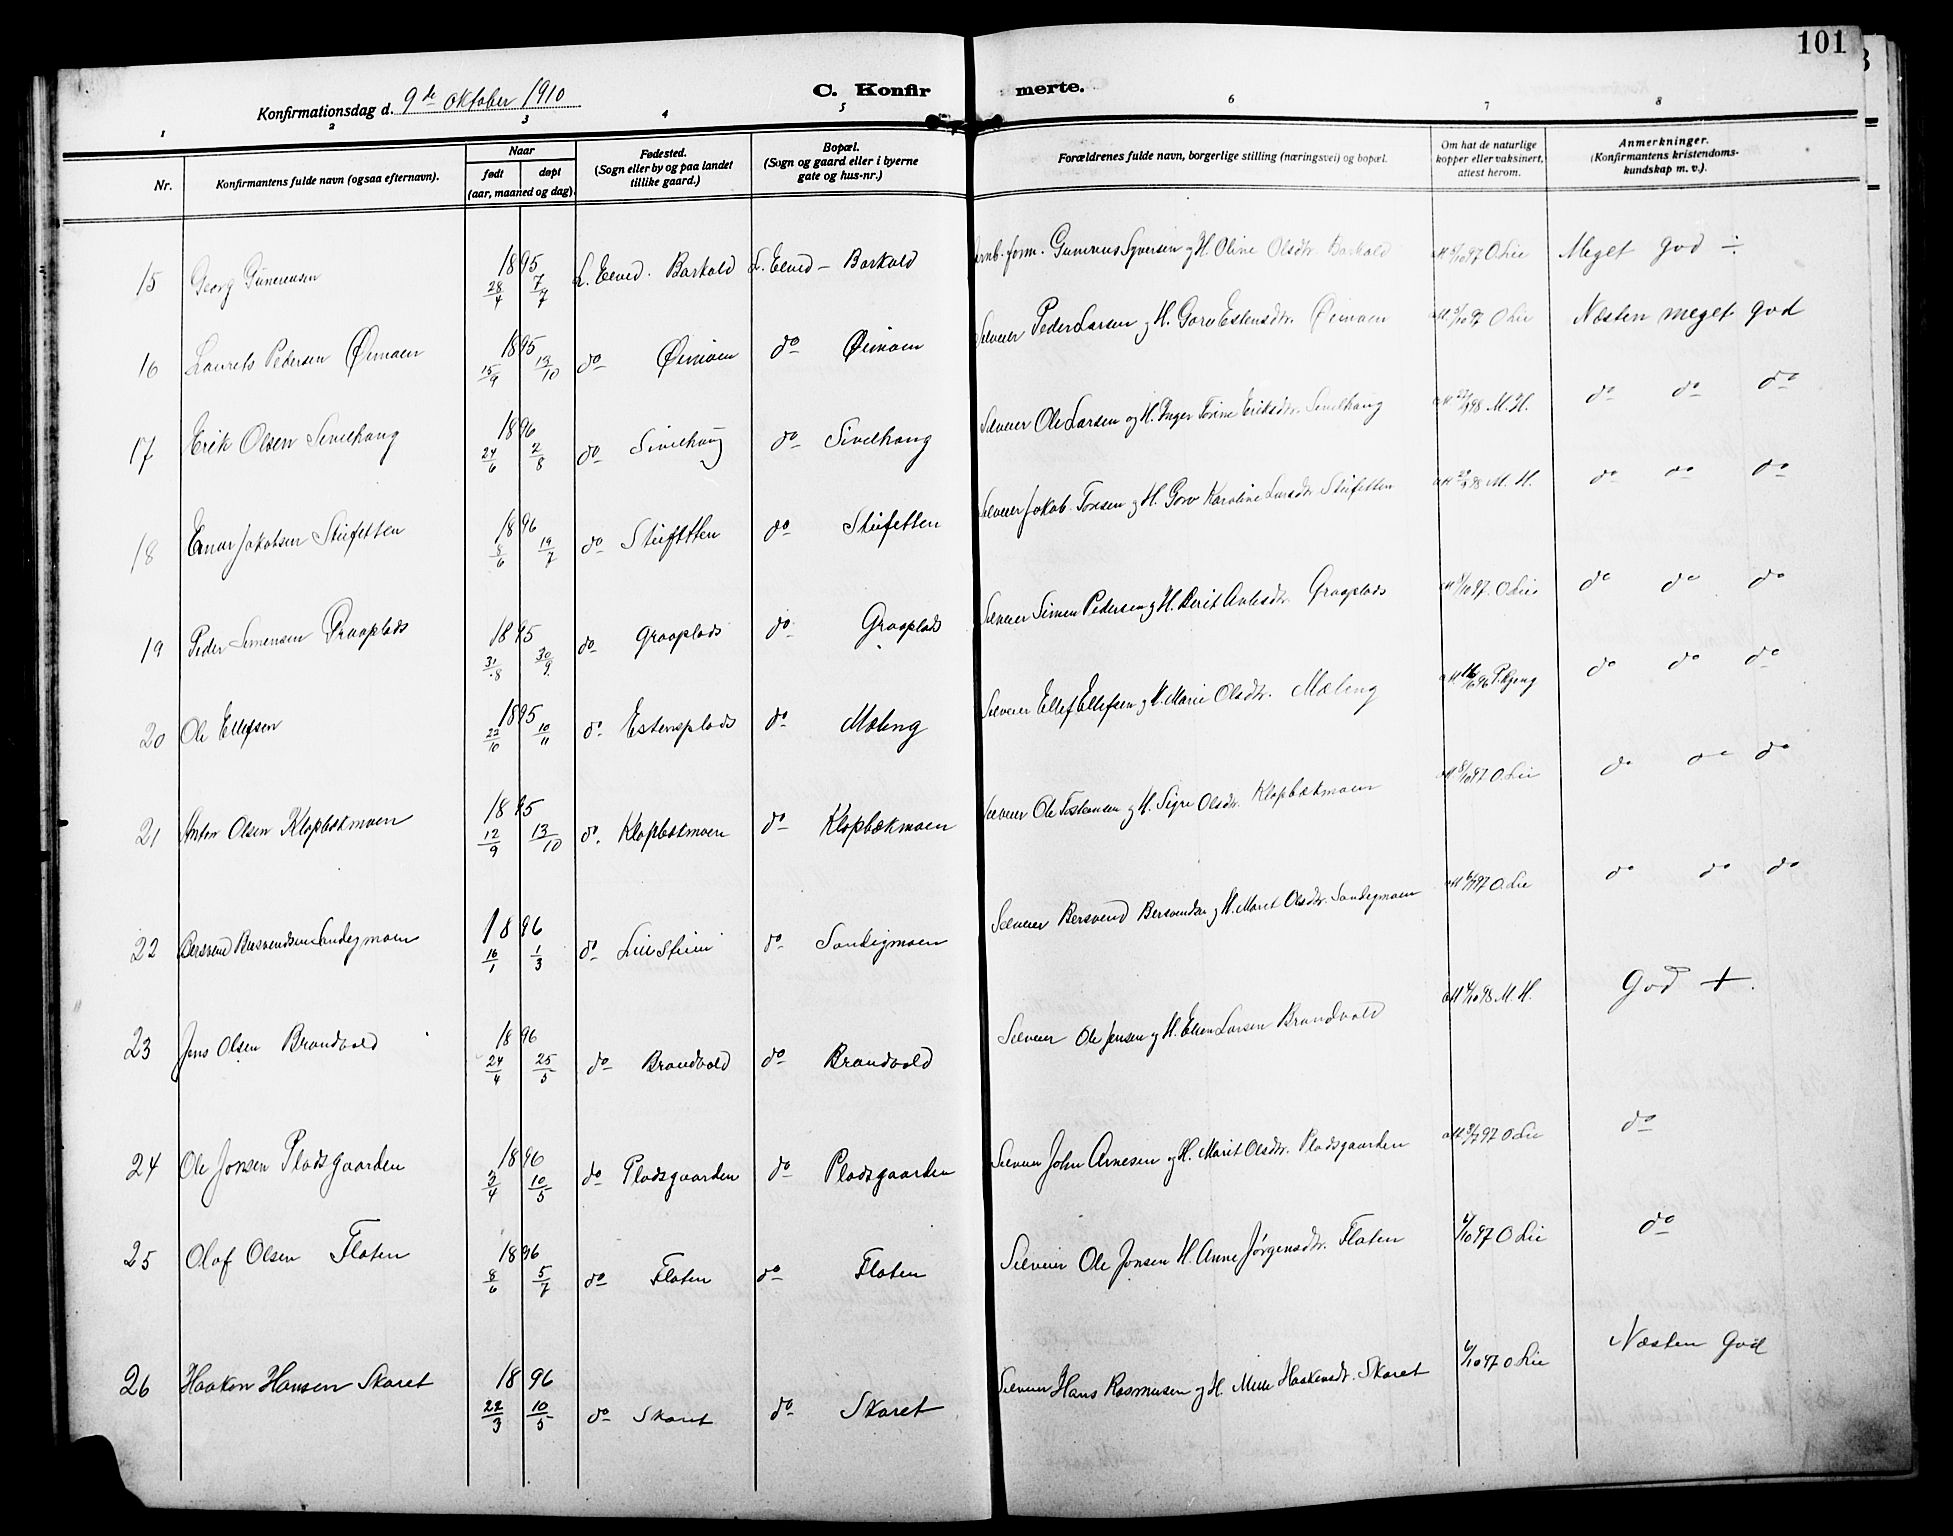 101
Konfirmationsdag d. 9de Oktober 1910
C. Konfirmerte.
1 2 3 4 5 6 7 8
Nr.
Konfirmantens fulde navn (ogsaa efternavn).
Naar
født døpt
(aar, maaned og dag).
Fødested.
(Sogn eller by og paa landet
tillike gaard.)
Bopæl.
(Sogn og gaard eller i byerne
gate og hus-nr.)
Forældrenes fulde navn, borgerlige stilling (næringsvei) og bopæl.
Om hat de naturlige
kopper eller vaksinert,
attest herom.
Anmerkninger.
(Konfirmantens kristendoms-
kundskap m. v.).
15 Georg Gunerussen 1895 28/4 7/7 L. Elved. Barkald L. Elved - Barkald Gunerius Syversen og H. Oline Olsdtr. Barkald O. Lie Meget god ÷
16 Laurits Pedersen Øimoen 1895 15/9 13/10 do Øimoen do Øimoen Selveier Peder Larsen og H. Goro Estensdtr. Øimoen O Lie Næsten meget god
17 Erik Olsen Sivilhaug 1896 24/6 2/8 do Sivilhaug do Sivilhaug Selveier Ole Larsen og H. Inger Torine Eriksdtr. Sivilhaug M. H. do do do
18 Einar Jakobsen Steifetten 1896 8/6 19/7 do Steifetten do Steifetten Selveier Jakob Tonsen og H. Goro Karoline Larsdtr Steifetten M. H. do do do
19 Peder Simensen Graaplads 1895 31/8 30/9 do Graaplads do Graaplads Selveier Simen Pedersen og H. Berit Arnesdtr. Graaplads O Lie do do do
20 Ole Ellefsen 1895 22/10 10/11 do Estensplads do Moeng Selveier Ellef Ellefsen og H. Marie Olsdtr. do do do
21 Anton Olsen Klopbækmoen 1895 12/9 13/10 do. Klopbækmoen do Klopbækmoen Selveier Ole og H. Sigri Olsdtr. Klopbækmoen O. Lie do do do
22 Bersvend Bersvendsen Sandegmoen 1896 16/1 1/3 do Lille Steiei do Sandegmoen Selveier Bersvend Bersvendsen og H. Marit Olsdtr. Sandegmoen O. Lie do do do
23 Jens Olsen Brandvold 1896 24/4 25/5 do Brandvold do Brandvold Selveier Ole Jensen og H. Ellen Larsen Brandvold M. H. God +.
24 Ole Jonsen Pladsgaarden 1896 3/4 10/5 do Pladsgaarden do Pladsgaarden Selveier John Arnesen og H. Marit Olsdtr. Pladsgaarden O Lie do
25 Olaf Olsen Floten 1896 8/6 5/7 do Floten do Floten Selveier Ole Jonsen H. Anne Jørgensdtr. Floten 6/10 97 O Lie do
26 Haakon Hansen Skaret 1896 22/3 10/5 do Skaret do Skaret Selveier Hans Rasmusen og H. Mille Haakensdtr. Skaret 6/10 97 O Lie Næsten God